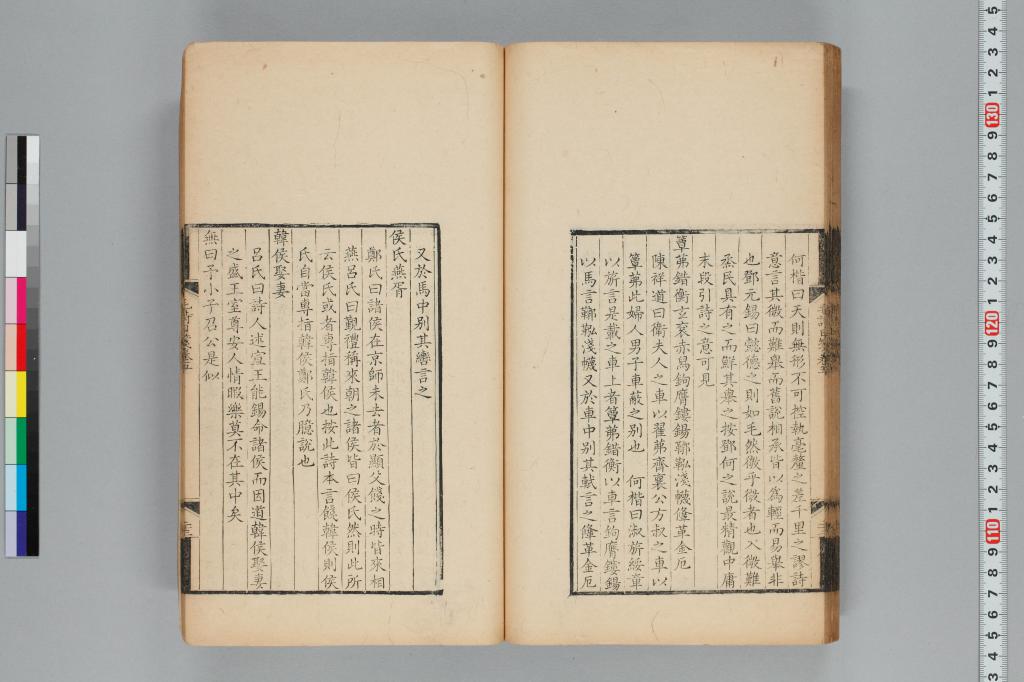 何楷曰天則無形不可控執毫釐之差千里之謬詩
意言其微而難舉而舊說相承皆以為輕而易舉非
也鄧元錫曰懿德之則如毛然微乎微者也入微難
烝民具有之而鮮其舉之按鄧何之說最精觀中庸
末段引詩之意可見
簟茀錯衡玄袞赤舄鉤膺鏤鍚鞹鞃淺幭鞗革金厄
陳祥道曰衛夫人之車以翟茀齊襄公方叔之車以
簟茀此婦人男子車蔽之別也　何楷曰淑旂綏章
以旂言是載之車上者簟茀錯衡以車言鉤膺鏤鍚
以馬言鞹鞃淺幭又於車中別其軾言之鞗革金厄
又於馬中別其轡言之
侯氏燕胥
鄭氏曰諸侯在京師未去者於顯父餞之時皆來相
燕呂氏曰覲禮稱來朝之諸侯皆曰侯氏然則此所
云侯氏或者專指韓侯也按此詩本言餞韓侯則侯
氏自當專指韓侯鄭氏乃臆說也
韓侯娶妻
呂氏曰詩人述宣王能錫命諸侯而因道韓侯娶妻
之盛王室尊安人情暇樂莫不在其中矣
無曰予小子召公是似